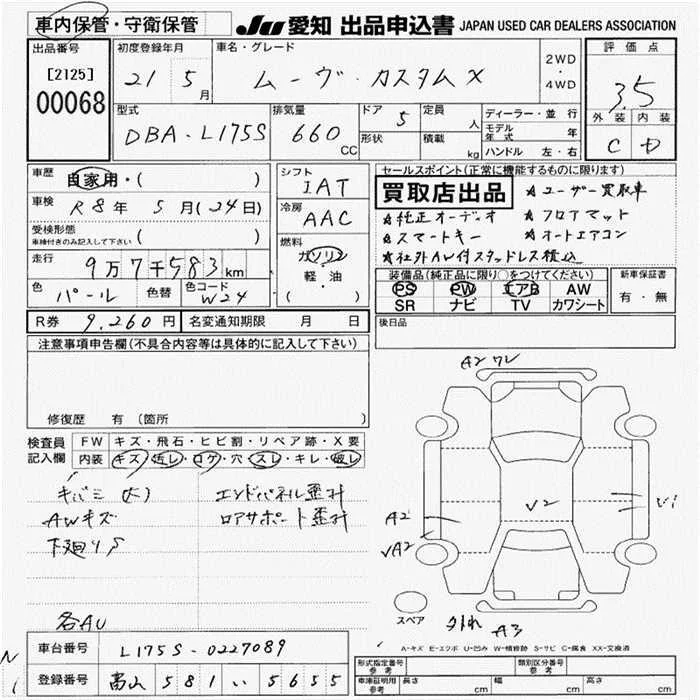 車内保管・守衛保管 JU 愛知 出品申込書 JAPAN USED CAR DEALERS ASSOCIATION
出品番号 初度登録年月 車名・グレード 評価点
[2125] 21 5月 ムーヴ・カスタムX 2WD・4WD 3.5
00068 外装 内装
型式 排気量 ドア 定員 ディーラー・並行
DBA-L175S 660 CC 5 人 モデル年式 年 C D
形状 積載 kg ハンドル 左・右
車歴 自家用・( ) シフト IAT セールスポイント(正常に機能するものに限ります)
車検 R8年 5月(24日) 冷房 AAC 買取店出品 ★ユーザー買取車
受検形態 ( ) ★純正オーディオ ★フロアマット
車検付きのみ記入して下さい 燃料 ★スマートキー ★オートエアコン
走行 9万7千583km ガソリン ★社外AW付スタッドレス積込
軽・油 装備品(純正品に限り○をつけてください) 新車保証書
色 パール 色替 色コード W24 ( ) PS PW エアB AW 有・無
SR ナビ TV カワシート
R券 9,260円 名変通知期限 月 日 後日品
注意事項申告欄(不具合内容等は具体的に記入して下さい)
修復歴 有 (箇所 )
検査員 FW キズ・飛石・ヒビ割・リペア跡・X要
記入欄 内装 キズ・汚レ・コゲ・穴・スレ・キレ・破レ
キバミ(大) エンドパネル歪汁
AWキズ ロアサポート歪汁
下廻りS
各AU
A2 ワレ
V2
A2
VA2
スペア 外れ A3
A-キズ E-エクボ U-凹み W-補修跡 S-サビ C-腐食 XX-交換済
車台番号 L175S-0227089
登録番号 富山 581 い 5655
形式指定番号 参考 類別区分番号 参考
車庫証明用 参考 長さ cm 幅 cm 高さ cm